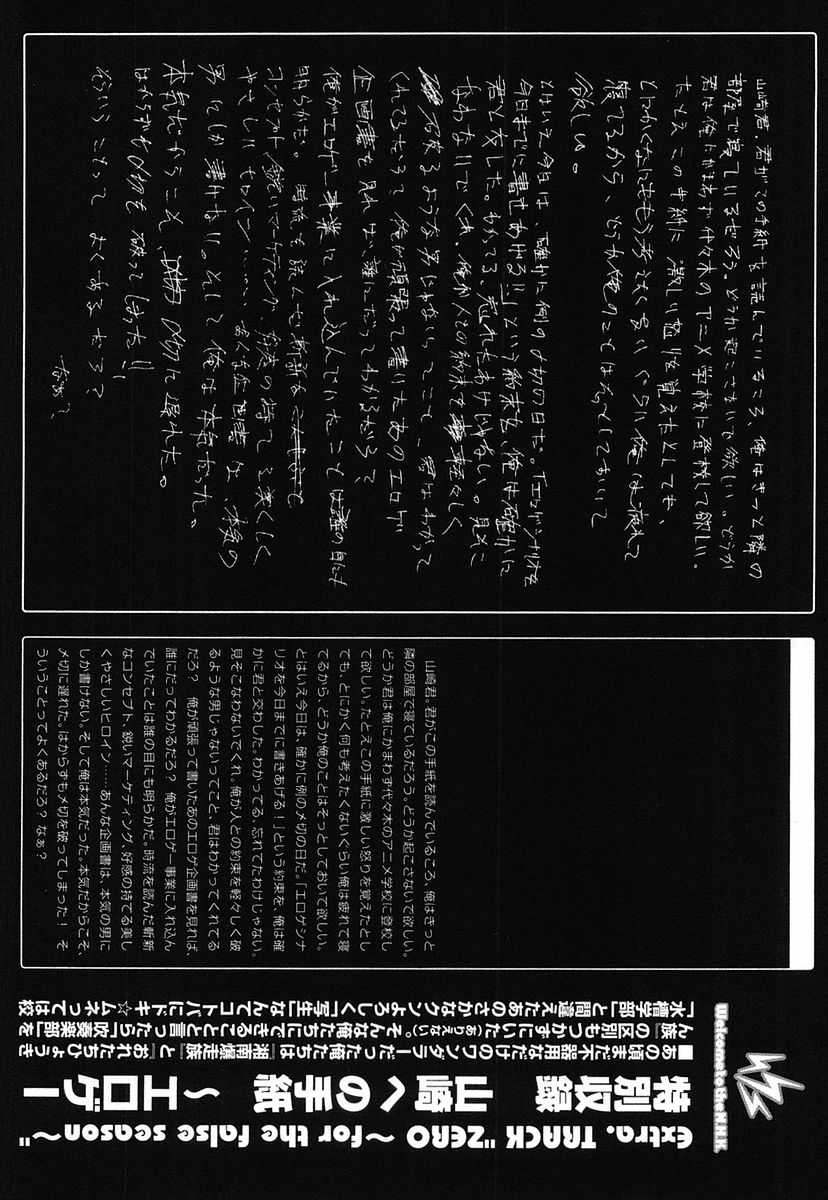 山崎君。君がこの手紙を読んでいるころ、俺はきっと隣の
部屋で寝ているだろう。どうか起こさないで欲しい。どうか
君は俺にかまわず代々木のアニメ学校に登校して欲しい。
たとえこの手紙に激しい怒りを覚えたとしても、
とにかくなにももう考えたくないぐらい俺は疲れて
寝てるから、どうか俺のことはそっとしておいて
欲しい。
とはいえ今日は、確かに例の〆切の日だ。「エロゲシナリオを
今日までに書きあげる!!」という約束を、俺は確かに
君と交した。わかってる、忘れたわけじゃない。見そこ
なわないでくれ。俺が人との約束を軽々しく
破るような男じゃないってこと、君はわかって
くれてるだろう？俺が頑張って書いたあのエロゲ
企画書を見れば、誰にだってわかるだろう？
俺がエロゲー事業に入れ込んでいたことは誰の目にも
明らかだ。時流を読んだ斬新な
コンセプト、鋭いマーケティング、好感の持てる美しく
やさしいヒロイン……、あんな企画書は、本気の
男にしか書けない。そして俺は本気だった。
本気だからこそ、〆切に遅れた。
はからずも〆切を破ってしまった!!
そういうことってよくあるだろ？
なあ？
山崎君。君がこの手紙を読んでいるころ、俺はきっと
隣の部屋で寝ているだろう。どうか起こさないで欲しい。
どうか君は俺にかまわず代々木のアニメ学校に登校し
て欲しい。たとえこの手紙に激しい怒りを覚えたとし
ても、とにかく何も考えたくないぐらい俺は疲れて寝
てるから、どうか俺のことはそっとしておいて欲しい。
とはいえ今日は、確かに例の〆切の日だ。「エロゲシナ
リオを今日までに書きあげる！」という約束を、俺は確
かに君と交わした。わかってる、忘れてたわけじゃない。
見そこなわないでくれ。俺が人との約束を軽々しく破
るような男じゃないってこと、君はわかってくれてる
だろ？　俺が頑張って書いたあのエロゲ企画書を見れば、
誰にだってわかるだろ？　俺がエロゲー事業に入れ込ん
でいたことは誰の目にも明らかだ。時流を読んだ斬新
なコンセプト、鋭いマーケティング、好感の持てる美し
くやさしいヒロイン……あんな企画書は、本気の男に
しか書けない。そして俺は本気だった。本気だからこそ、
〆切に遅れた。はからずも〆切を破ってしまった！　そ
ういうことってよくあるだろ？　なぁ？
Welcome to the N.H.K.
extra. TRACK "ZERO ～for the false season～"
特別収録　山崎への手紙　～エロゲー
■あの頃まだ不器用なだけのワンダラーだった俺たちは『湘南爆走族』と『おれたちひょうき
ん族』の区別もつかずにいた（ありえない）。そんな俺たちにできることと言ったら「吹奏楽部」を
「水槽学部」と間違えたあのさかなクンよろしく「写生」なんてコトバにドキ☆ムネっては校